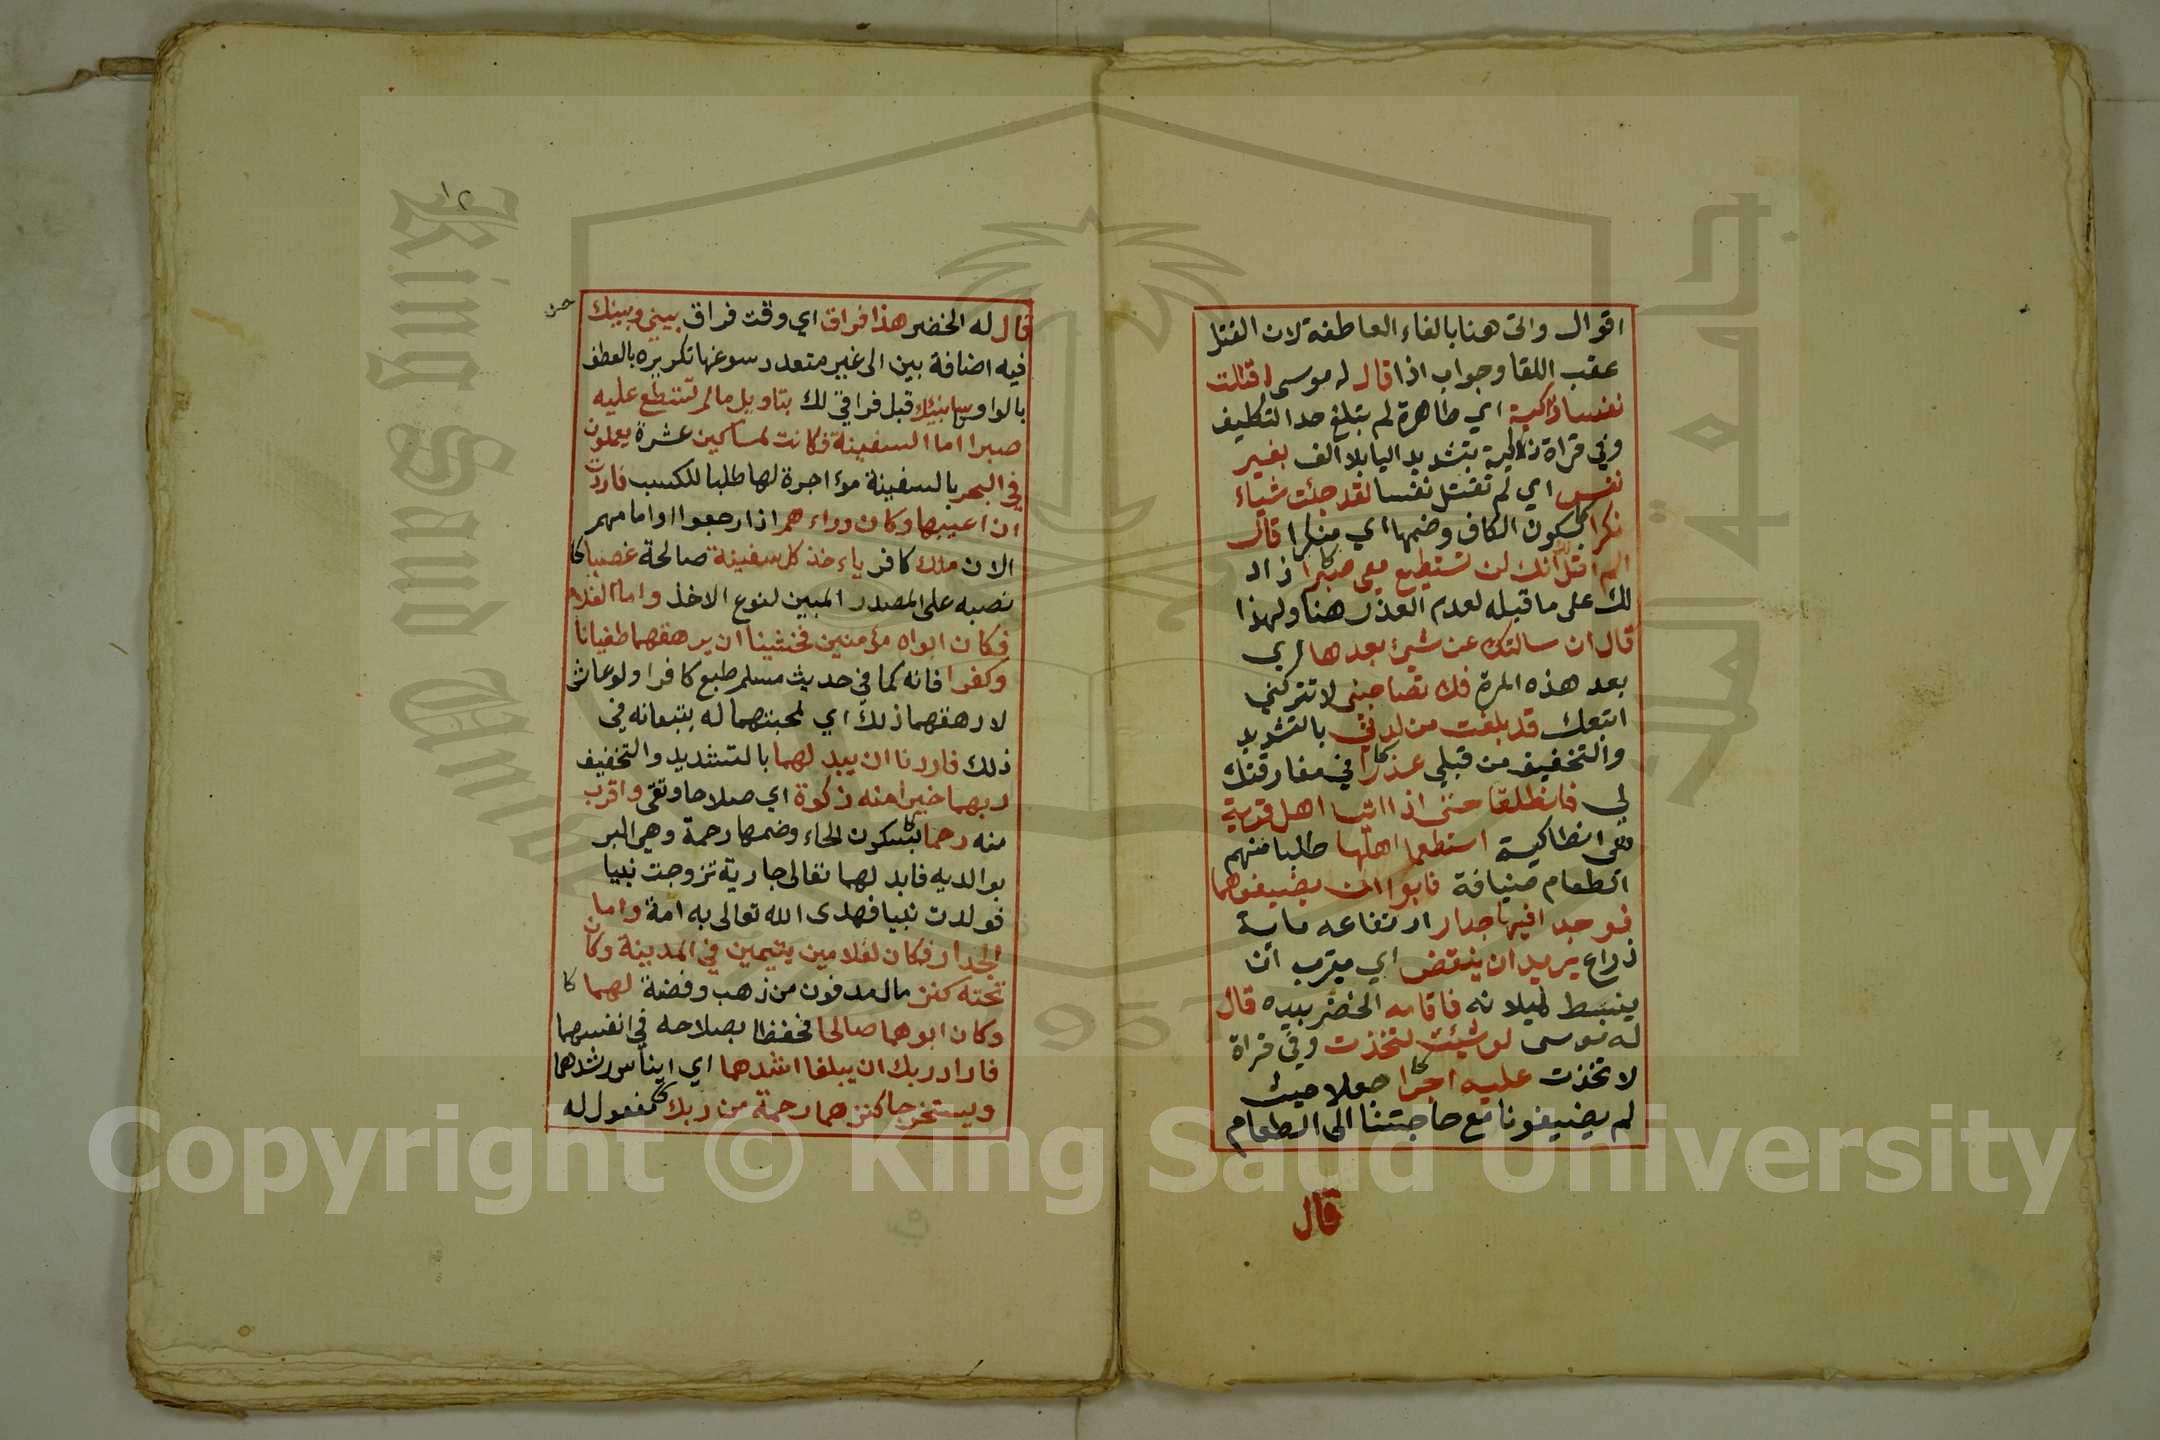 اقوال واتى هنا بالفاء العاطفة لان القتل
عقب اللقا وجواب اذا قال له موسى اقتلت
نفسا زاكية اي طاهرة لم تبلغ حد التكليف
وفي قراة زكية بتشديد اليا بلا الف بغير
نفس اي لم تقتل نفسا لقد جئت شياء
نكرا بسكون الكاف وضمها اي منكرا قال
الم اقل انك لن تستطيع معي صبرا زاد
لك على ما قبله لعدم العذر هنا ولهذا
قال ان سالتك عن شيئ بعدها اي
بعد هذه المرة فلا تصاحبنى لا تتركني
اتبعك قد بلغت من لدني بالتشديد
والتخفيف من قبلي عذرا في مفارقتك
لي فانطلقا حتى اذا اتيا اهل قرية
هي انطاكية استطعما اهلها طلبا منهم
الطعام ضيافة فابوا ان يضيفوهما
فوجدا فيها جدارا ارتفاعه ماية
ذراع يريد ان ينقض اي يقرب ان
يسقط لميلانه فاقامه الخضر بيده قال
له موسى لو شيئت لتخذت وفي قراة
لاتخذت عليه اجرا جعلا حيث
لم يضيفونا مع حاجتنا الى الطعام
قال
١٢
قال له الخضر هذا فراق اي وقت فراق بيني وبينك
فيه اضافة بين الى غير متعدد سوغها تكريره بالعطف
بالواو سانبئك قبل فراقي لك بتاويل مالم تستطع عليه
صبرا اما السفينة فكانت لمساكين عشرة يعملون
في البحر بالسفينة موءاجرة لها طلبا للكسب فاردت
ان اعيبها وكان وراءهم اذا رجعوا او امامهم
الان ملك كافر ياءخذ كل سفينة صالحة غصبا
نصبه على المصدر المبين لنوع الاخذ واما الغلام
فكان ابواه مؤمنين فخشينا ان يرهقهما طغيانا
وكفرا فانه كما في حديث مسلم طبع كافرا ولو عاش
لارهقهما ذلك اي لمحبتهما له يتبعانه في
ذلك فاردنا ان يبدلهما بالتشديد والتخفيف
ربهما خيرا منه زكوة اي صلاحا وتقى واقرب
منه رحما بسكون الحاء وضمها رحمة وهي البر
بوالديه فابدلهما تعالى جارية تزوجت نبيا
فولدت نبيا فهدى الله تعالى به امة واما
الجدار فكان لغلامين يتيمين في المدينة وكان
تحته كنز مال مدفون من ذهب وفضة لهما
وكان ابوهما صالحا فحفظا بصلاحه في انفسهما
فاراد ربك ان يبلغا اشدهما اي ايناس رشدهما
ويستخرجا كنزهما رحمة من ربك مفعول له
جامعة الملك
King Saud University
1957
Copyright © King Saud University